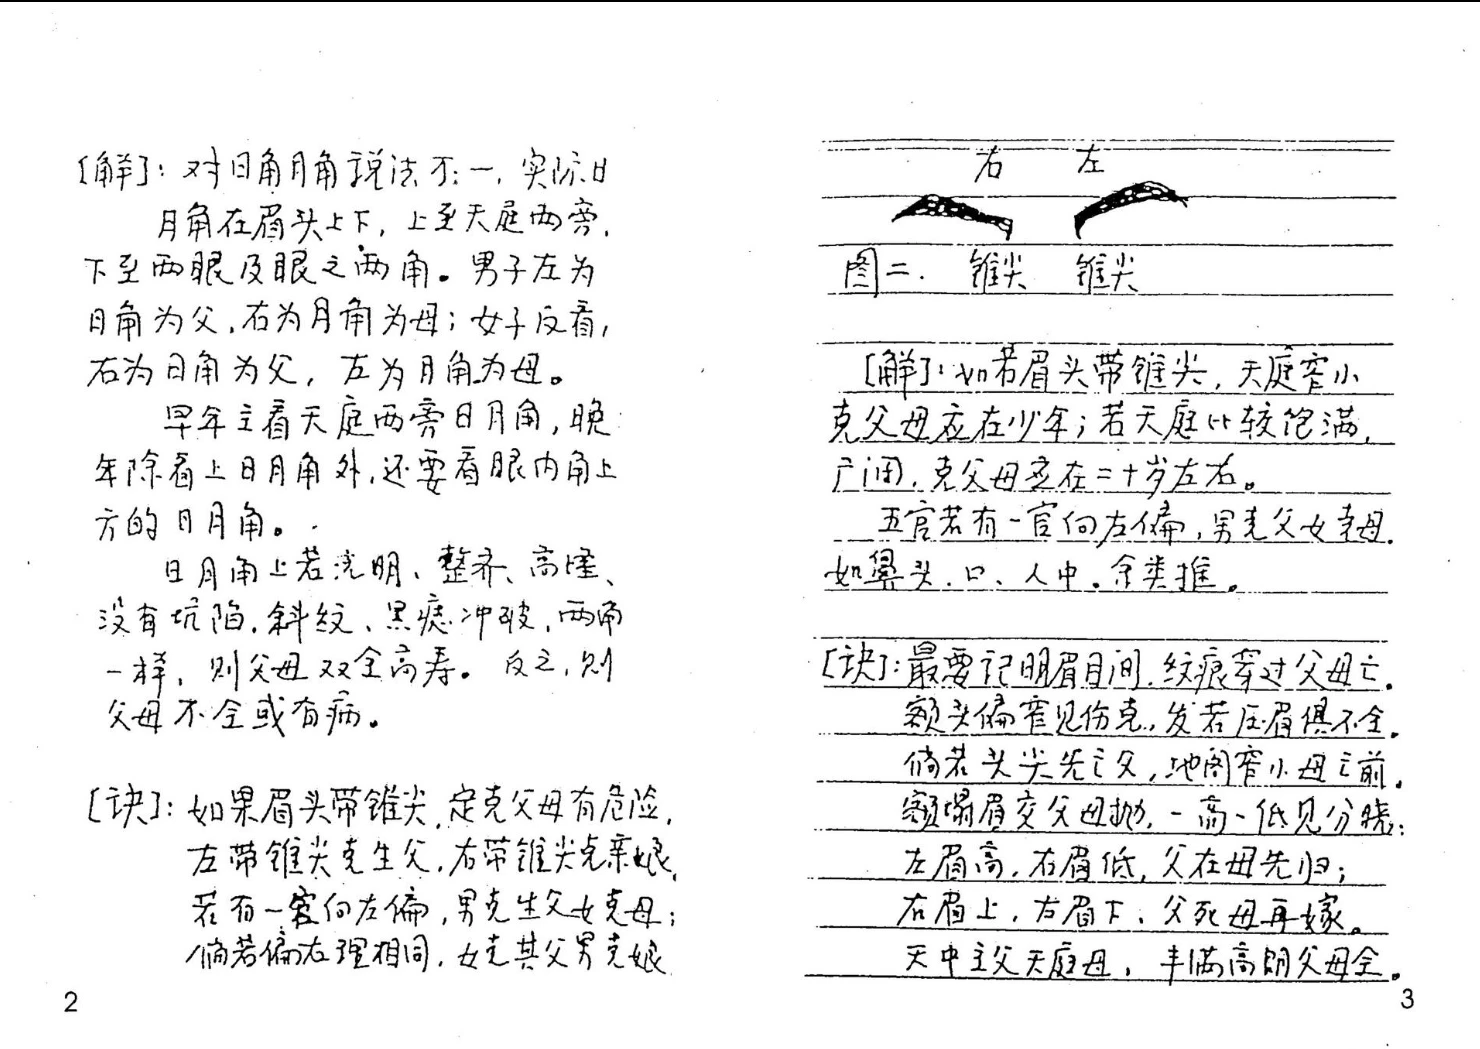 [解]：对日角月角说法不一，实际日
月角在眉头上下，上至天庭两旁，
下至两眼及眼之两角。男子左为
日角为父，右为月角为母；女子反看，
右为日角为父，左为月角为母。
早年主看天庭两旁日月角，晚
年除看上日月角外，还要看眼内角上
方的日月角。
日月角上若光明、整齐、高隆、
没有坑陷，斜纹、黑痣冲破，两角
一样，则父母双全高寿。反之，则
父母不全或有病。
[诀]：如果眉头带锥尖，定克父母有危险，
左带锥尖克生父，右带锥尖克亲娘，
若有一官向左偏，男克生父女克母；
倘若偏右理相同，女克其父男克娘
2
右 左
图二. 锥尖 锥尖
[解]：如若眉头带锥尖，天庭窄小
克父母应在少年；若天庭比较饱满，
广阔，克父母应在二十岁左右。
五官若有一官向左偏，男克父女克母。
如鼻头、口、人中。余类推。
[诀]：最要记明眉目间，纹痕穿过父母亡。
额头偏窄见伤克，发若压眉俱不全。
倘若头尖先亡父，地阁窄小母亡前。
额塌眉交父母抛，一高一低见分晓：
左眉高，右眉低，父在母先归；
右眉上，左眉下，父死母再嫁。
天中主父天庭母，丰满高朗父母全。
3